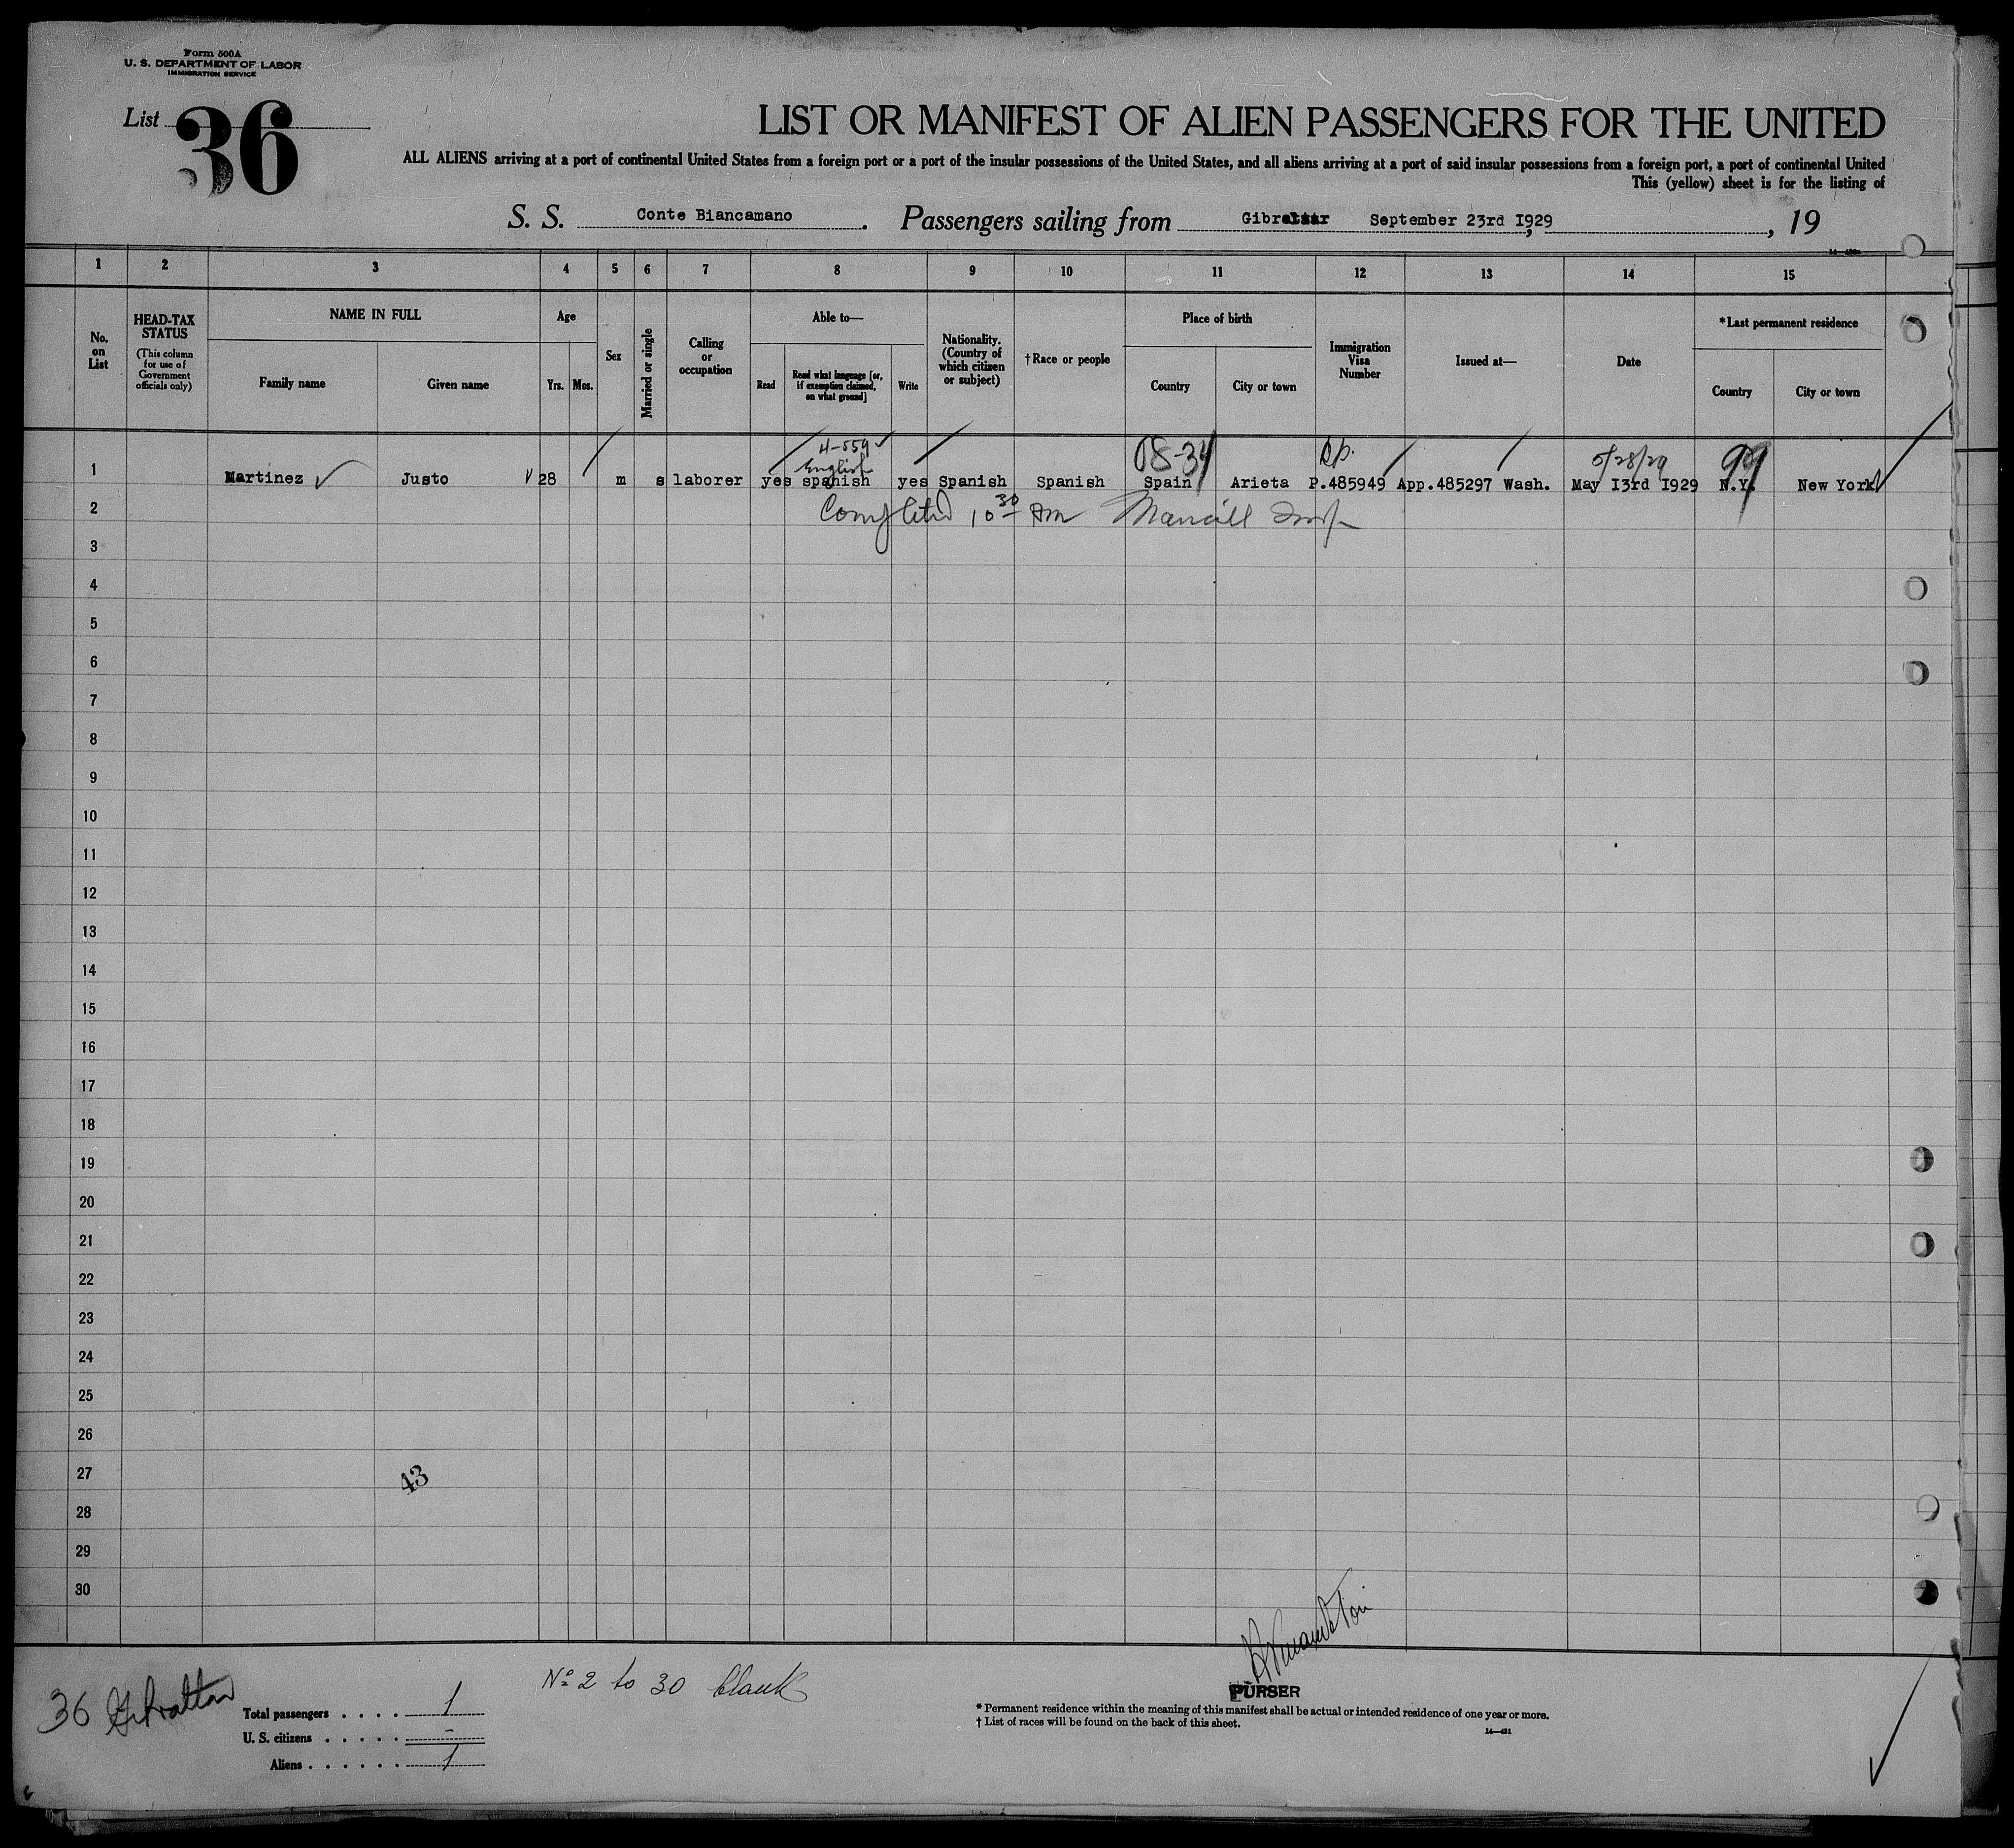 Form 500A
U. S. DEPARTMENT OF LABOR
IMMIGRATION SERVICE
List 36
LIST OR MANIFEST OF ALIEN PASSENGERS FOR THE UNITED
ALL ALIENS arriving at a port of continental United States from a foreign port or a port of the insular possessions of the United States, and all aliens arriving at a port of said insular possessions from a foreign port, a port of continental United
This (yellow) sheet is for the listing of
S. S. Conte Biancamano. Passengers sailing from Gibraltar September 23rd I929, , 19
1 2 3 4 5 6 7 8 9 10 11 12 13 14 15
No. on List
HEAD-TAX STATUS
(This column for use of Government officials only)
NAME IN FULL
Family name
Given name
Age
Yrs.
Mos.
Sex
Married or single
Calling or occupation
Able to—
Read
Read what language [or, if exemption claimed, on what ground]
Write
Nationality. (Country of which citizen or subject)
†Race or people
Place of birth
Country
City or town
Immigration Visa Number
Issued at—
Date
*Last permanent residence
Country
City or town
4-559
English
08-34
R.P.
5/28/29
99
1 Martinez Justo 28 m s laborer yes spanish yes Spanish Spanish Spain Arieta P.485949 App.485297 Wash. May I3rd I929 N.Y. New York
2
Completed 10 30 AM
3
4
5
6
7
8
9
10
11
12
13
14
15
16
17
18
19
20
21
22
23
24
25
26
27
43
28
29
30
36 Gibraltar
No 2 to 30 blank
PURSER
Total passengers . . . . 1
U. S. citizens . . . . . -
Aliens . . . . . . 1
* Permanent residence within the meaning of this manifest shall be actual or intended residence of one year or more.
† List of races will be found on the back of this sheet.
14—431